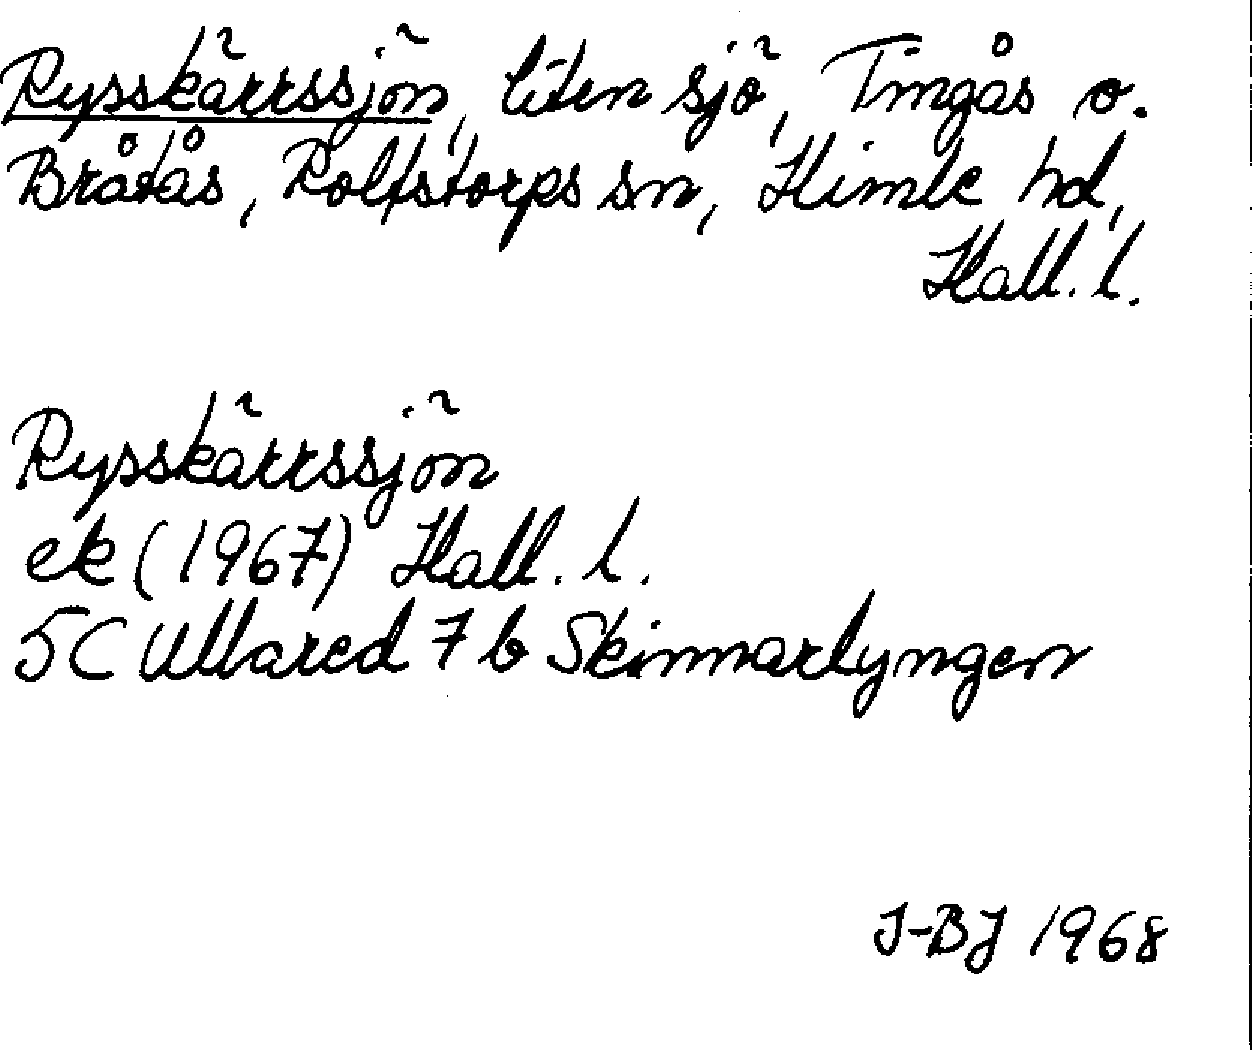 Rysskärrssjön, liten sjö, Tingås o.
Bråtås, Rolfstorps sn, Himle hd,
Hall. l.
Rysskärrssjön
ek (1967) Hall. l.
5C Ullared 7 b Skinnarlyngen
I-BJ 1968